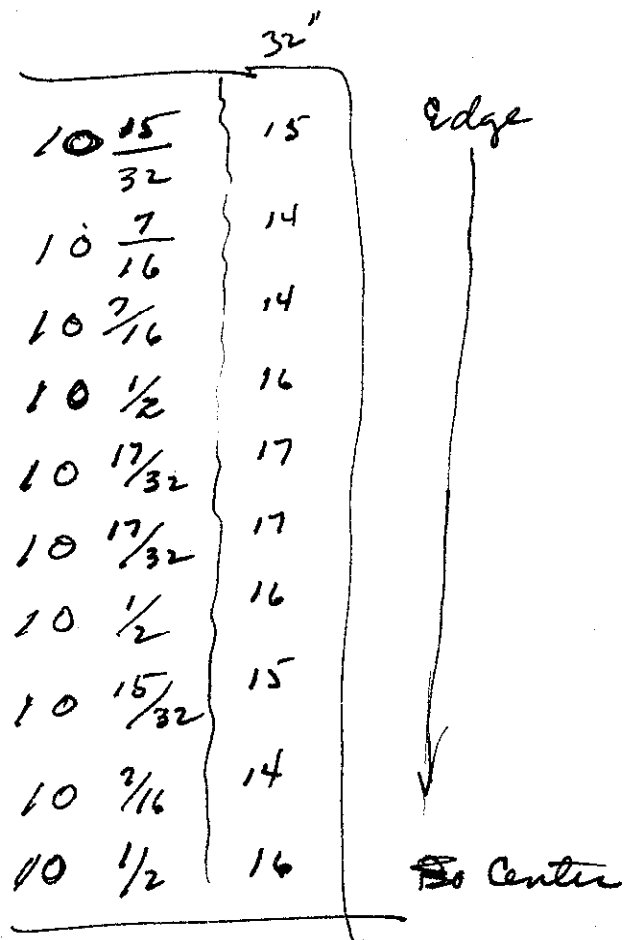 32"
10 15/32 15 Edge
10 7/16 14
10 7/16 14
10 1/2 16
10 17/32 17
10 17/32 17
10 1/2 16
10 15/32 15
10 7/16 14
10 1/2 16 Center